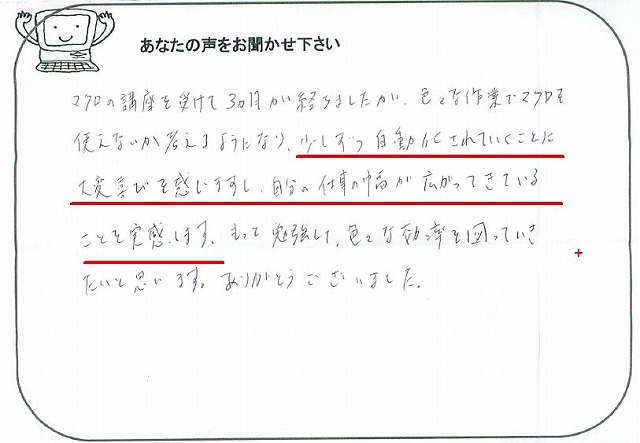 あなたの声をお聞かせ下さい
マクロの講座を受けて3カ月が経ちましたが、色々な作業でマクロを
使えないか考えるようになり、少しずつ自動化されていくことに
大変喜びを感じますし、自分の仕事の幅が広がってきている
ことを実感します。もっと勉強して、色々な効率を図っていき
たいと思います。ありがとうございました。